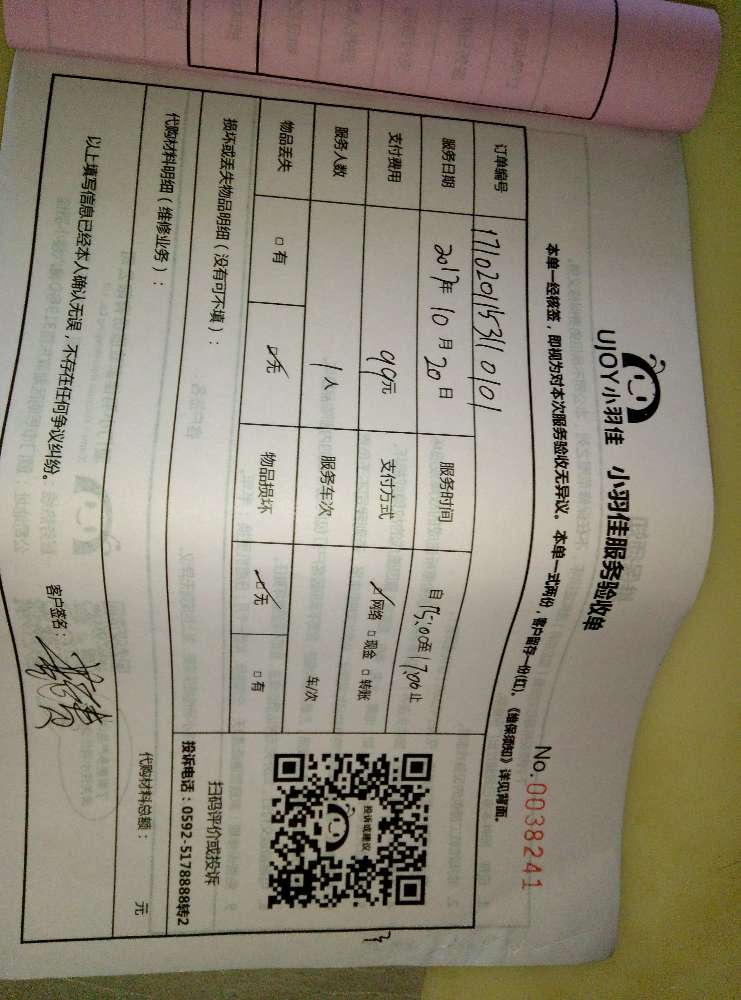 UJOY小羽佳 小羽佳服务验收单
No.0038241
本单一经核签，即视为对本次服务验收无异议。本单一式两份，客户留存一份(红)。《维保须知》详见背面。
订单编号 1710201153110101
服务时间 自15:00至17:00止
服务日期 2017年10月20日
支付费用 99元 支付方式 ☑网络 □现金 □转账
服务人数 1人 服务车次 车/次
物品丢失 □有 ☑无 物品损坏 ☑无 □有
投诉或建议
扫码评价或投诉
投诉电话：0592-5178888转2
损坏或丢失物品明细（没有可不填）：
代购材料明细（维修业务）： 代购材料总额： 元
以上填写信息已经本人确认无误，不存在任何争议纠纷。 客户签名：